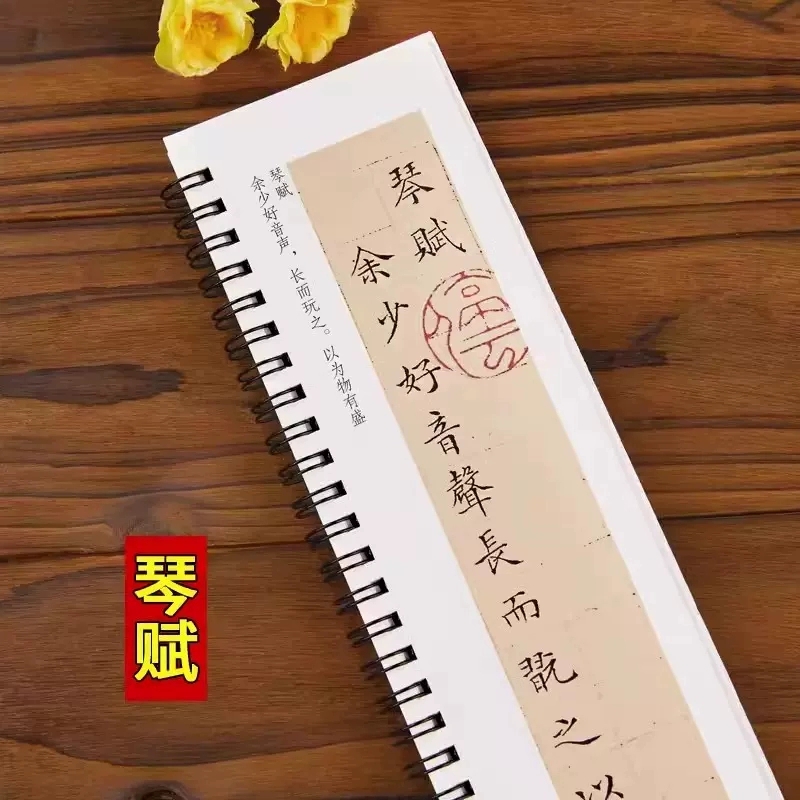 琴賦
余少好音聲長而翫之以
琴赋
余少好音声，长而玩之。以为物有盛
琴赋